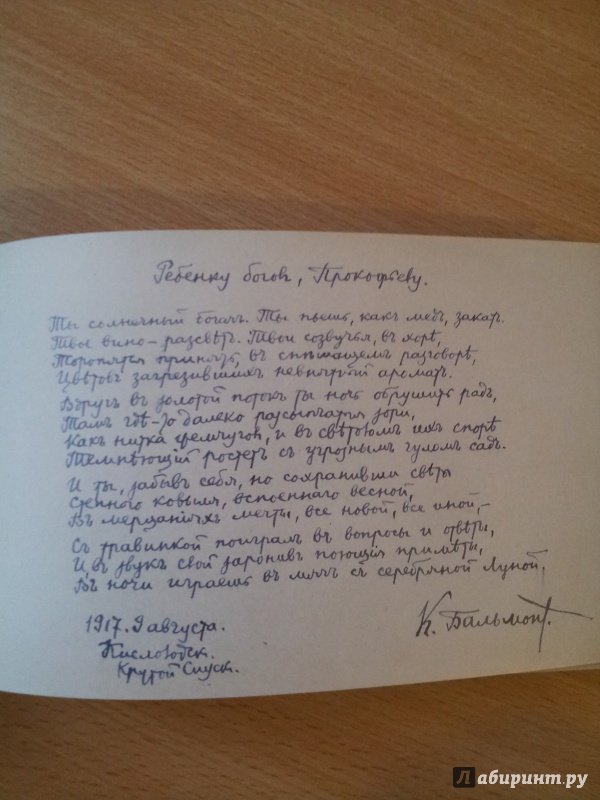 Ребенку боговъ, Прокофьеву.
Ты солнечный богачъ. Ты пьешь, какъ медъ, закатъ.
Твое вино – разсвѣтъ. Твои созвучья, въ хорѣ,
Торопятся принять, въ спѣшащемъ разговорѣ,
Цвѣтовъ загрезившихъ невнятный ароматъ.
Вдругъ въ золотой потокъ ты ночь обрушить радъ,
Тамъ гдѣ-то далеко разсыпчатыя зори,
Какъ нитка жемчуговъ, и въ свѣтломъ ихъ спорѣ
Темнѣющій ростетъ съ угрознымъ гуломъ садъ.
И ты, забывъ себя, но сохранивши свѣты
Степного ковыля, вспоеннаго весной,
Въ мерцаніяхъ мечты, все новой, все иной, –
Съ травинкой поигралъ въ вопросы и отвѣты,
И, въ звукъ свой заронивъ поющія примѣты,
Въ ночи играешь въ мячъ съ серебряной Луной.
1917. 9 августа.
Кисловодск.
Крутой Спуск.
К. Бальмонт.
Лабиринт.ру